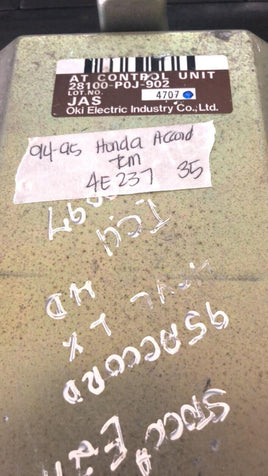 AT CONTROL UNIT
28100-P0J-902
LOT.NO.
JAS 4707
Oki Electric Industry Co., Ltd.
94-95 Honda Accord
tcm
4E237 35
TCM
LX
95ACCORD
STOCK#